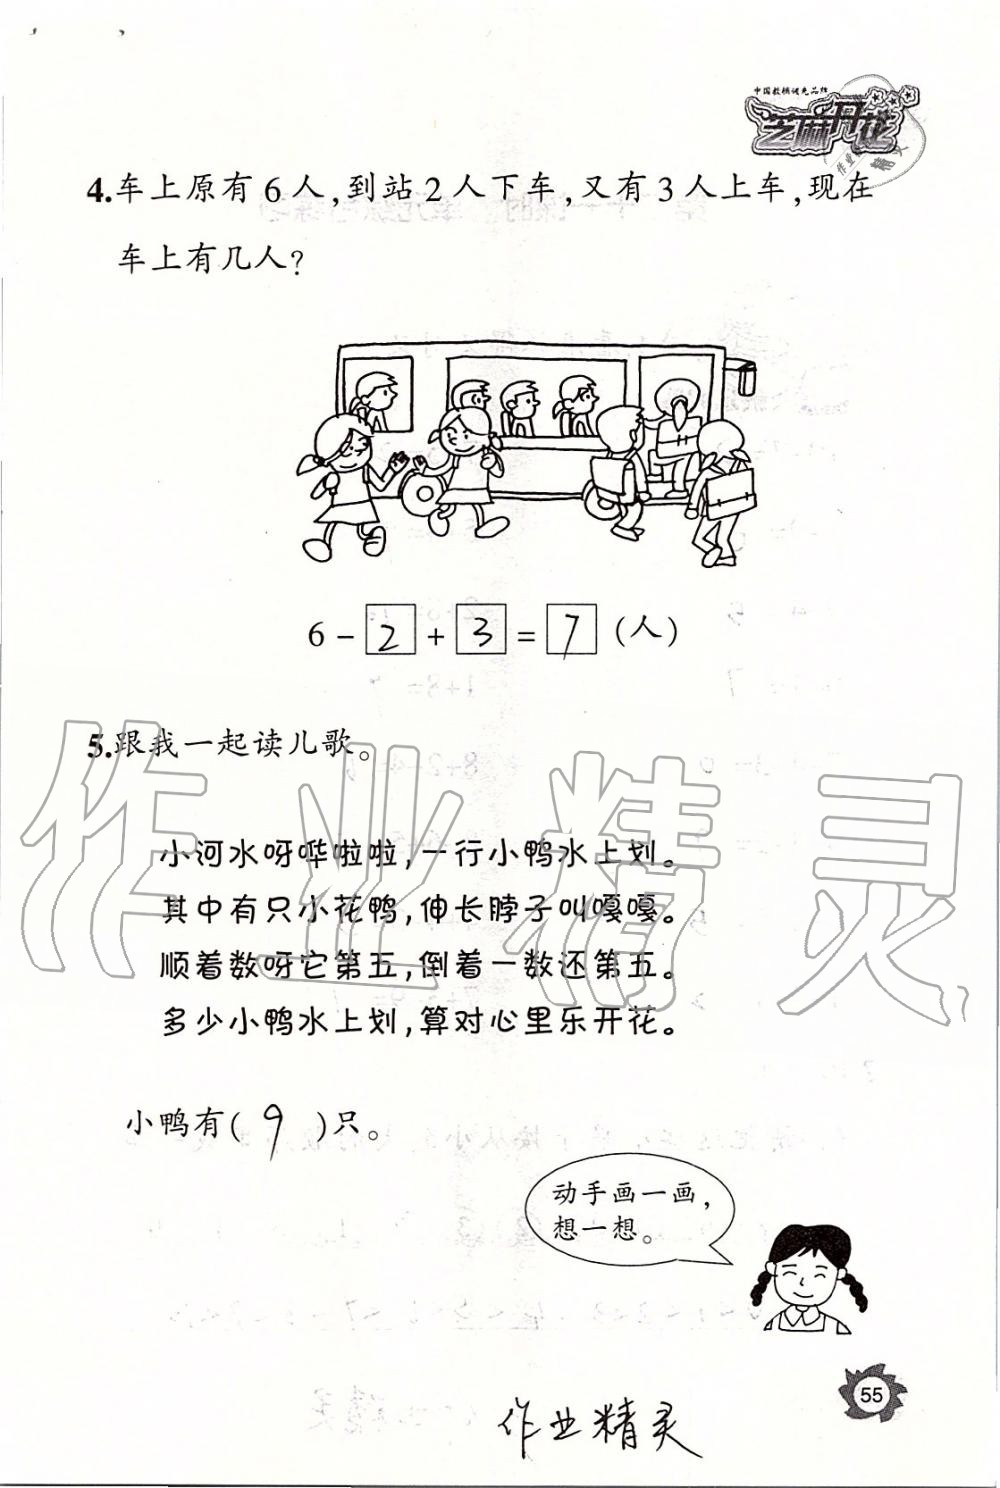 中国教辅领先品牌
芝麻开花
4.车上原有6人,到站2人下车,又有3人上车,现在
车上有几人?
6-2+3=7(人)
5.跟我一起读儿歌。
小河水呀哗啦啦,一行小鸭水上划。
其中有只小花鸭,伸长脖子叫嘎嘎。
顺着数呀它第五,倒着一数还第五。
多少小鸭水上划,算对心里乐开花。
小鸭有(9)只。
动手画一画,
想一想。
55
作业精灵
作业精灵